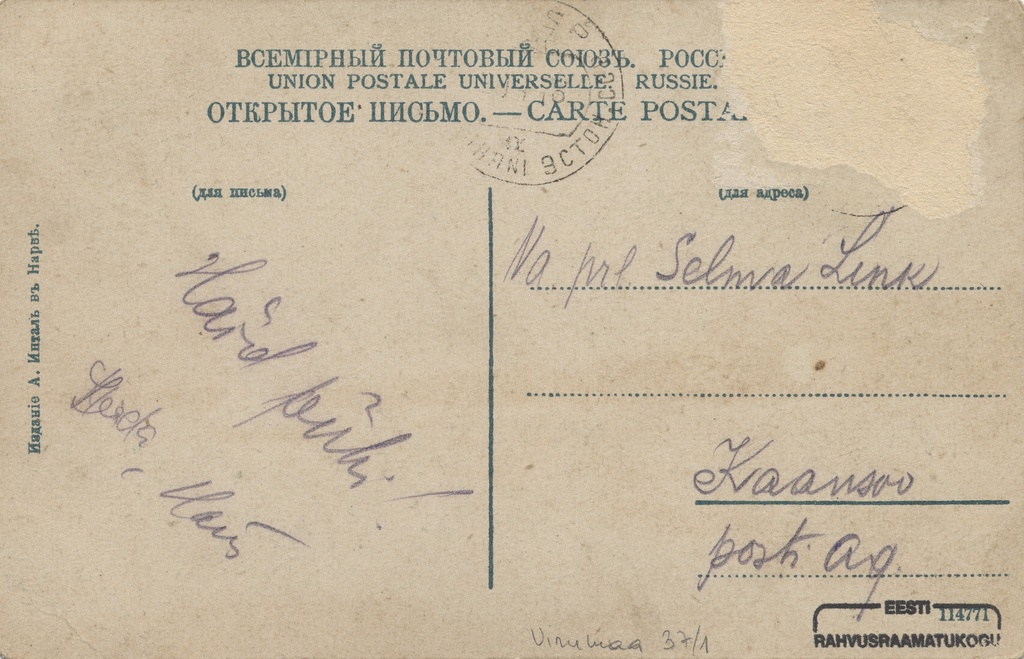 ВСЕМІРНЫЙ ПОЧТОВЫЙ СОЮЗЪ. РОСС
UNION POSTALE UNIVERSELLE. RUSSIE.
ОТКРЫТОЕ ПИСЬМО. — CARTE POSTA
ЭСТОН
(для письма)
(для адреса)
Изданіе А. Инталь въ Нарвѣ.
Häid pühi!
Na prl Selma Link
Kaansoo
posti Ag.
Virumaa 37/1
EESTI 114771
RAHVUSRAAMATUKOGU